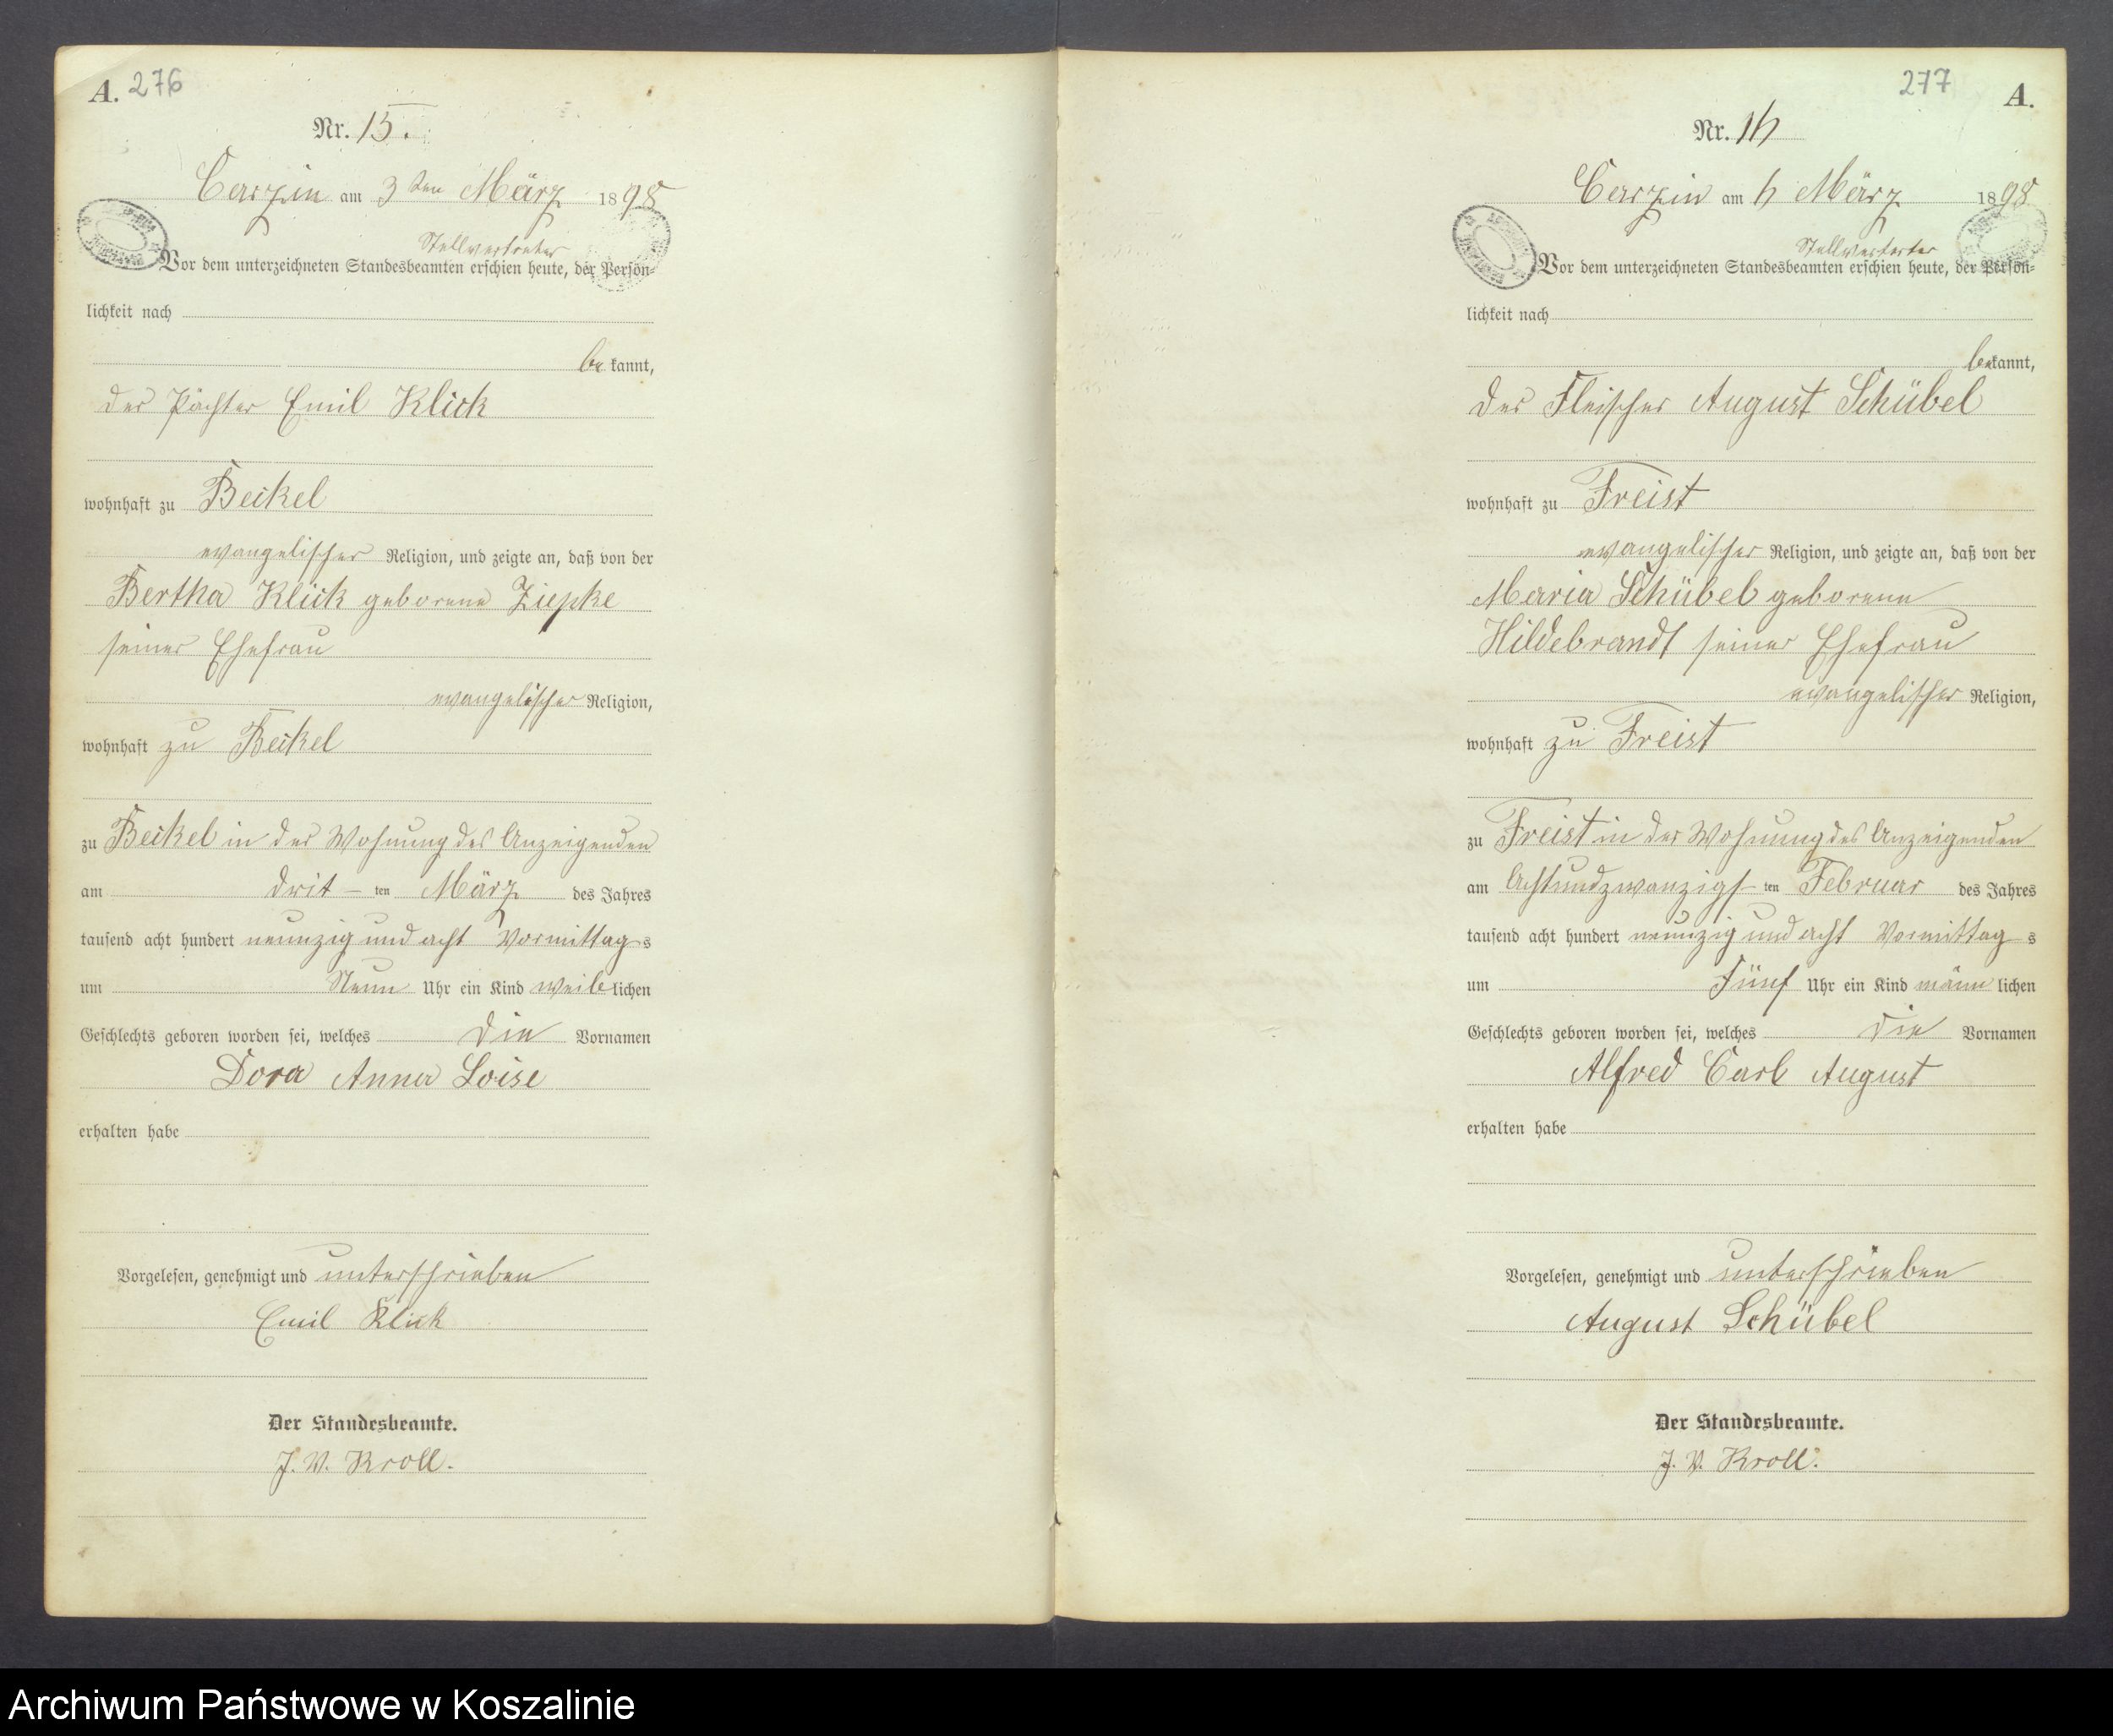 A. 276
Nr. 15.
Carzin am 3ten März 1898
Stellvertreter
Vor dem unterzeichneten Standesbeamten erschien heute, der Persön-
lichkeit nach
be kannt,
der Pächter Emil Klick
wohnhaft zu Beckel
evangelischer Religion, und zeigte an, daß von der
Bertha Klick geborene Ziepke
seiner Ehefrau
evangelischer Religion,
wohnhaft zu Beckel
zu Beckel in der Wohnung des Anzeigenden
am drit – ten März des Jahres
tausend acht hundert neunzig und acht Vormittag s
um Neun Uhr ein Kind weib lichen
Geschlechts geboren worden sei, welches die Vornamen
Dora Anna Loise
erhalten habe
Vorgelesen, genehmigt und unterschrieben
Emil Klick
Der Standesbeamte.
J. V. Kroll.
277 A.
Nr. 16
Carzin am 6 März 1898
Vor dem unterzeichneten Standesbeamten erschien heute, der Persön-
lichkeit nach
bekannt,
der Fleischer August Schübel
wohnhaft zu Freist
evangelischer Religion, und zeigte an, daß von der
Maria Schübel geborene
Hildebrandt seiner Ehefrau
evangelischer Religion,
wohnhaft zu Freist
zu Freist in der Wohnung des Anzeigenden
am Achtundzwanzigst ten Februar des Jahres
tausend acht hundert neunzig und acht Vormittag s
um Fünf Uhr ein Kind männ lichen
Geschlechts geboren worden sei, welches die Vornamen
Alfred Carl August
erhalten habe
Vorgelesen, genehmigt und unterschrieben
August Schübel
Der Standesbeamte.
J. V. Kroll.
Archiwum Państwowe w Koszalinie